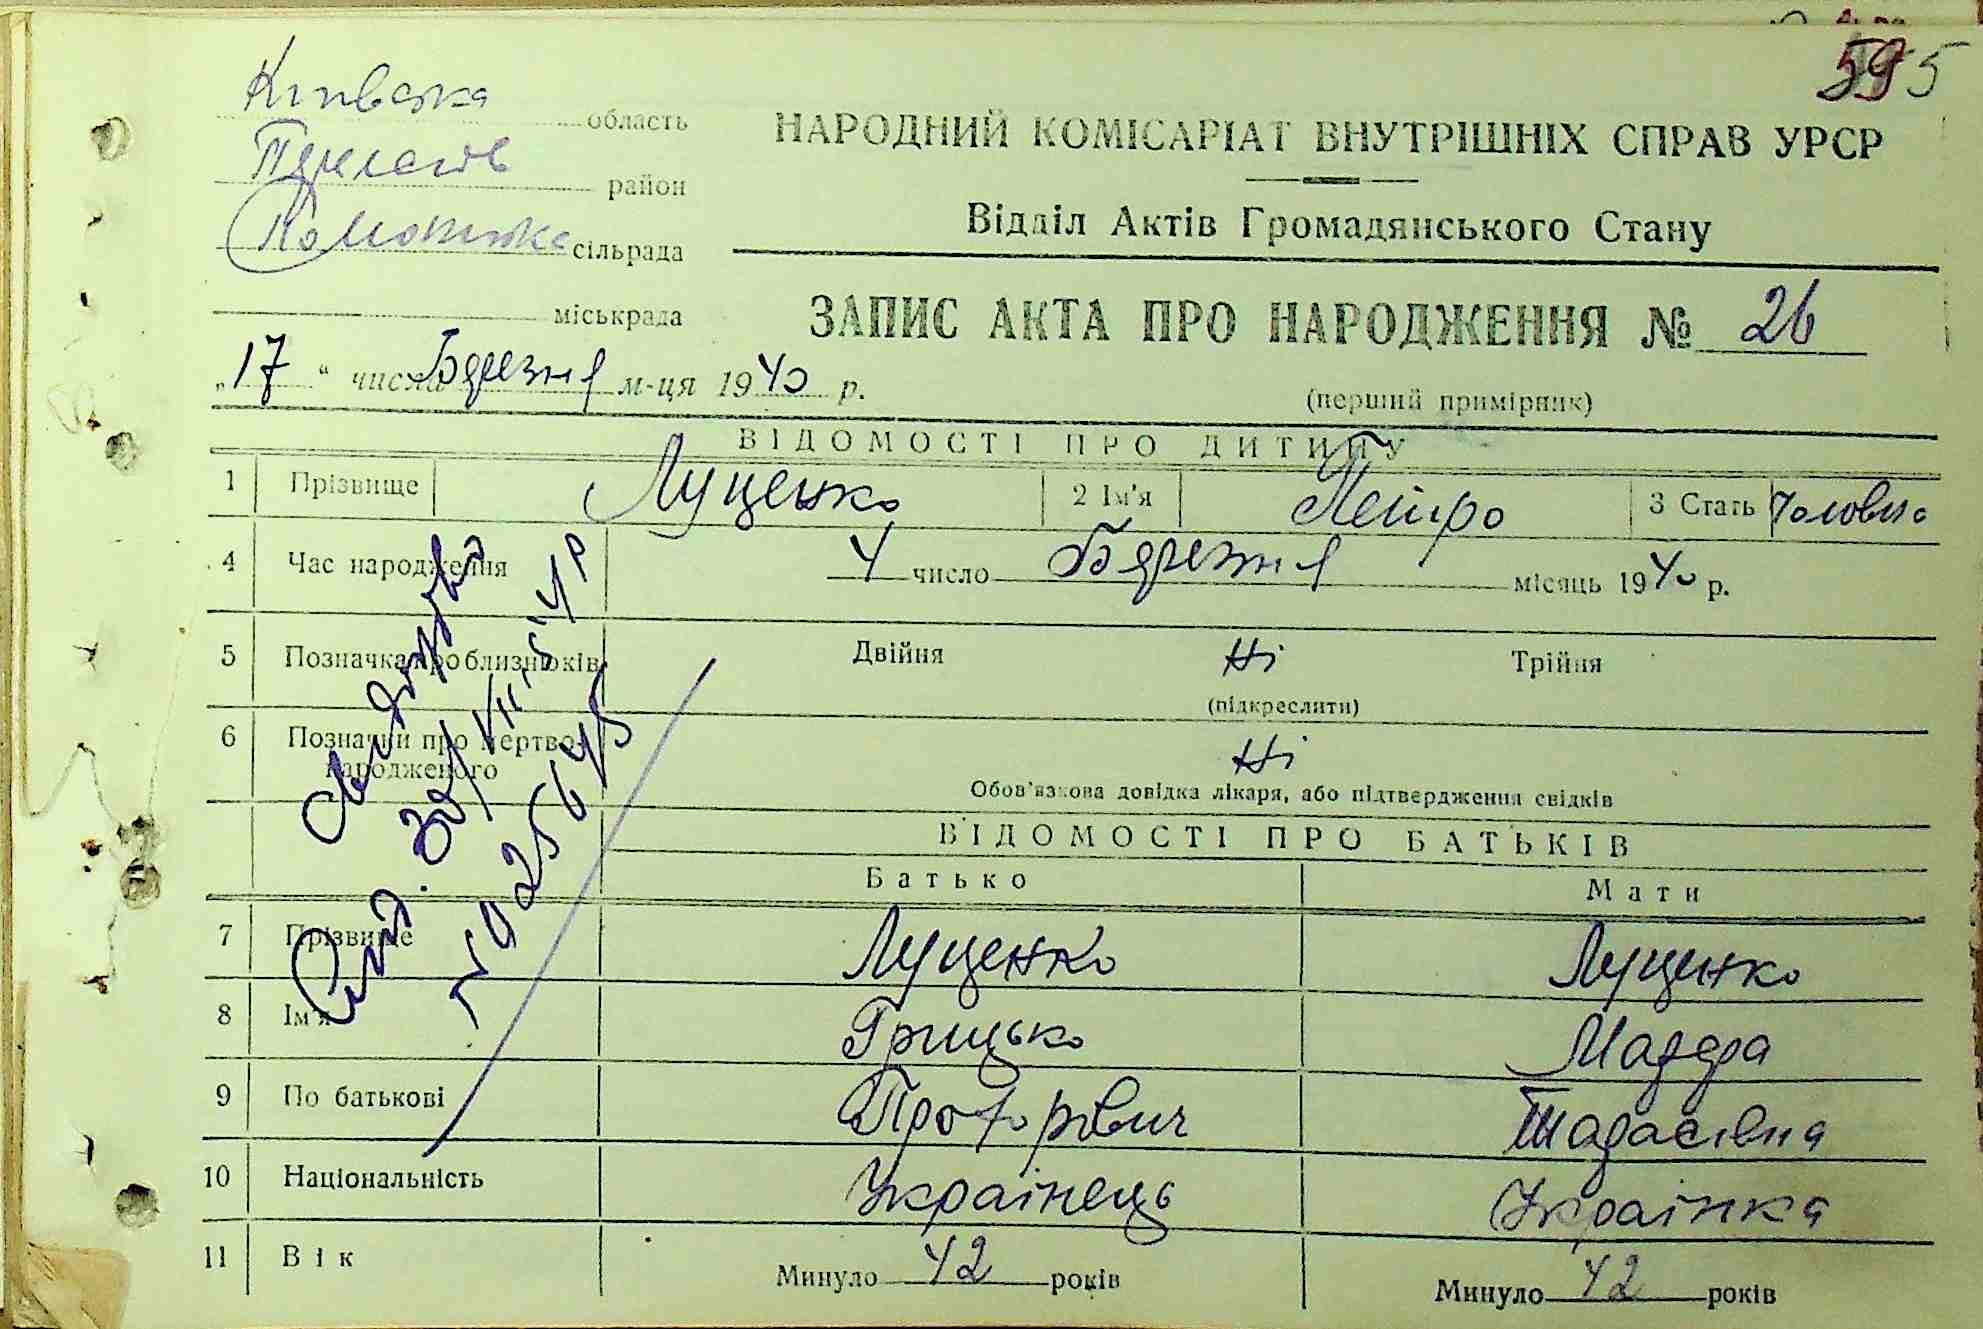 595
Київська область
район
сільрада
міськрада
НАРОДНИЙ КОМІСАРІАТ ВНУТРІШНІХ СПРАВ УРСР
Відділ Актів Громадянського Стану
ЗАПИС АКТА ПРО НАРОДЖЕННЯ № 26
(перший примірник)
„17“ числа Березня м-ця 1940 р.
ВІДОМОСТІ ПРО ДИТИНУ
1 Прізвище Луценко 2 Ім'я Петро 3 Стать
4 Час народження 4 число Березня місяць 1940 р.
5 Позначка про близнюків Двійня Ні Трійня
(підкреслити)
6 Позначки про мертво-
народженого Ні
Обов'язкова довідка лікаря, або підтвердження свідків
ВІДОМОСТІ ПРО БАТЬКІВ
Батько Мати
7 Прізвище Луценко Луценко
8 Ім'я Грицько
9 По батькові Тарасівна
10 Національність Українець Українка
11 Вік Минуло 42 років Минуло 42 років